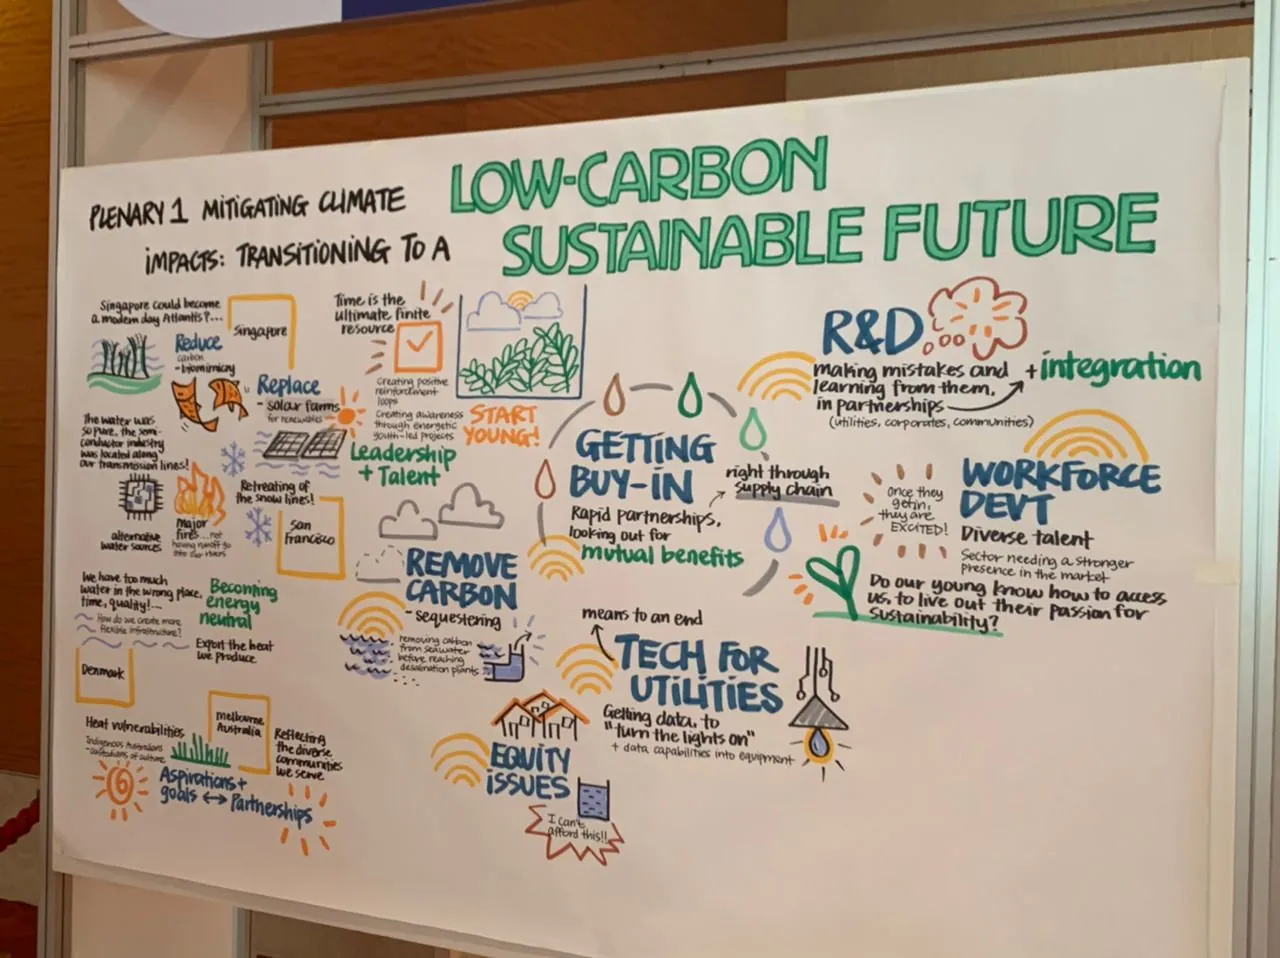 PLENARY 1 MITIGATING CLIMATE
IMPACTS: TRANSITIONING TO A
LOW-CARBON
SUSTAINABLE FUTURE
Singapore could become
a modern day Atlantis?...
Singapore
Reduce
carbon
- biomimicry
Replace
- solar farms
for renewables
Time is the
ultimate finite
resource
Creating positive
reinforcement
loops
Creating awareness
through energetic
youth-led projects
START
YOUNG!
Leadership
+ Talent
The water was
so pure, the semi-
conductor industry
was located along
our transmission lines!
alternative
water sources
Major
fires...not
having runoff go
into
Retreating of
the snow lines!
San
Francisco
We have too much
water in the wrong place,
time, quality!...
How do we create more
flexible infrastructure?
Becoming
energy
neutral
Export the heat
we produce
Denmark
Heat vulnerabilities
Indigenous Australians
- custodians of culture
Melbourne
Australia
Reflecting
the diverse
communities
we serve
Aspirations +
goals ↔ Partnerships
REMOVE
CARBON
- sequestering
removing carbon
from seawater
before reaching
desalination plants
GETTING
BUY-IN
right through
supply chain
Rapid partnerships,
looking out for
mutual benefits
means to an end
TECH FOR
UTILITIES
Getting data, to
"turn the lights on"
+ data capabilities into equipment
EQUITY
ISSUES
I can't
afford this!!
R&D
making mistakes and
learning from them,
in partnerships
(utilities, corporates, communities)
+ integration
Once they
get in,
they are
EXCITED!
WORKFORCE
DEVT
Diverse talent
Sector needing a stronger
presence in the market
Do our young know how to access
us, to live out their passion for
sustainability?